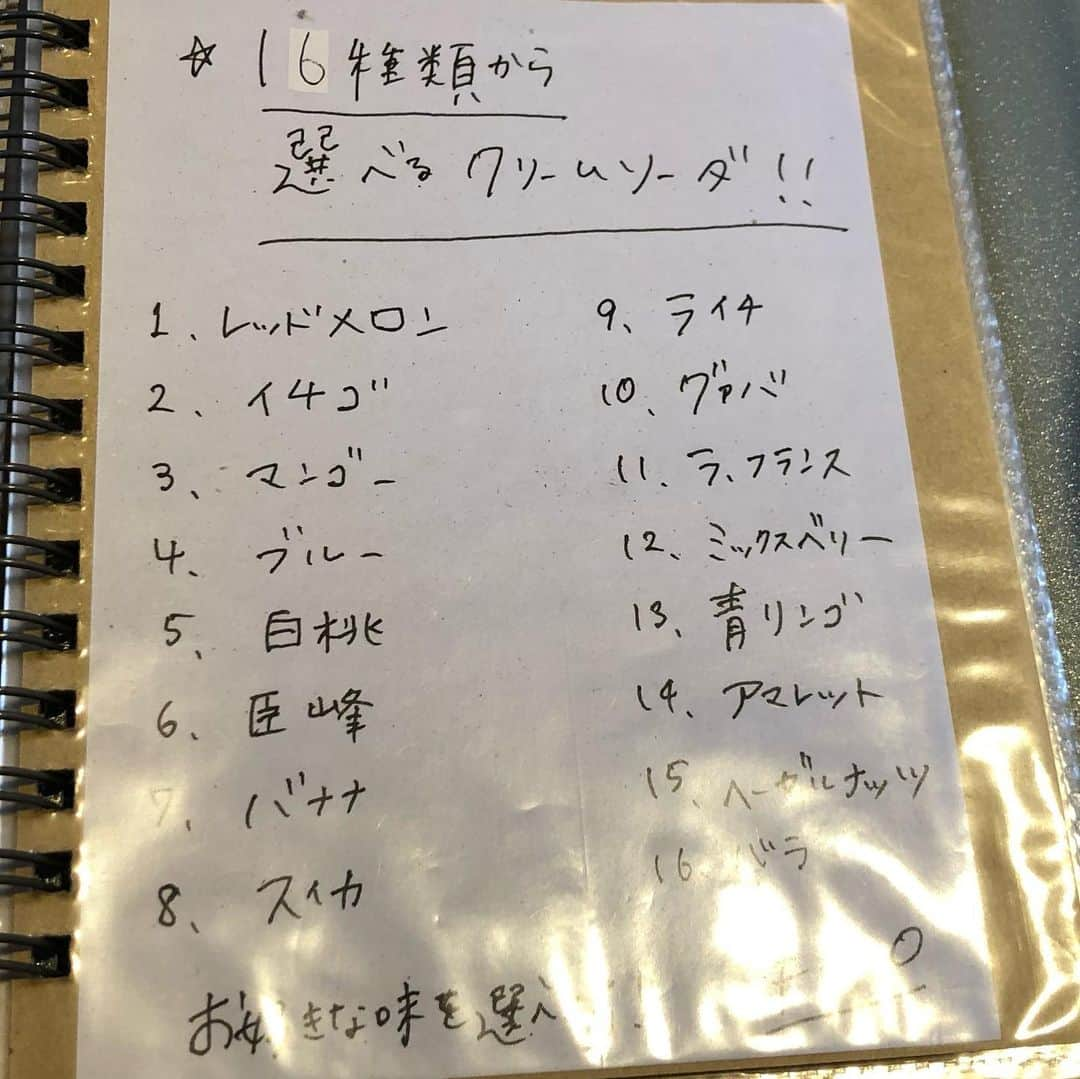 ☆ 16種類から
選べるクリームソーダ!!
1、レッドメロン
2、イチゴ
3、マンゴー
4、ブルー
5、白桃
6、臣峰
7、バナナ
8、スイカ
9、ライチ
10、グァバ
11、ラ、フランス
12、ミックスベリー
13、青リンゴ
14、アマレット
15、ヘーゼルナッツ
16、バラ
お好きな味を選べ